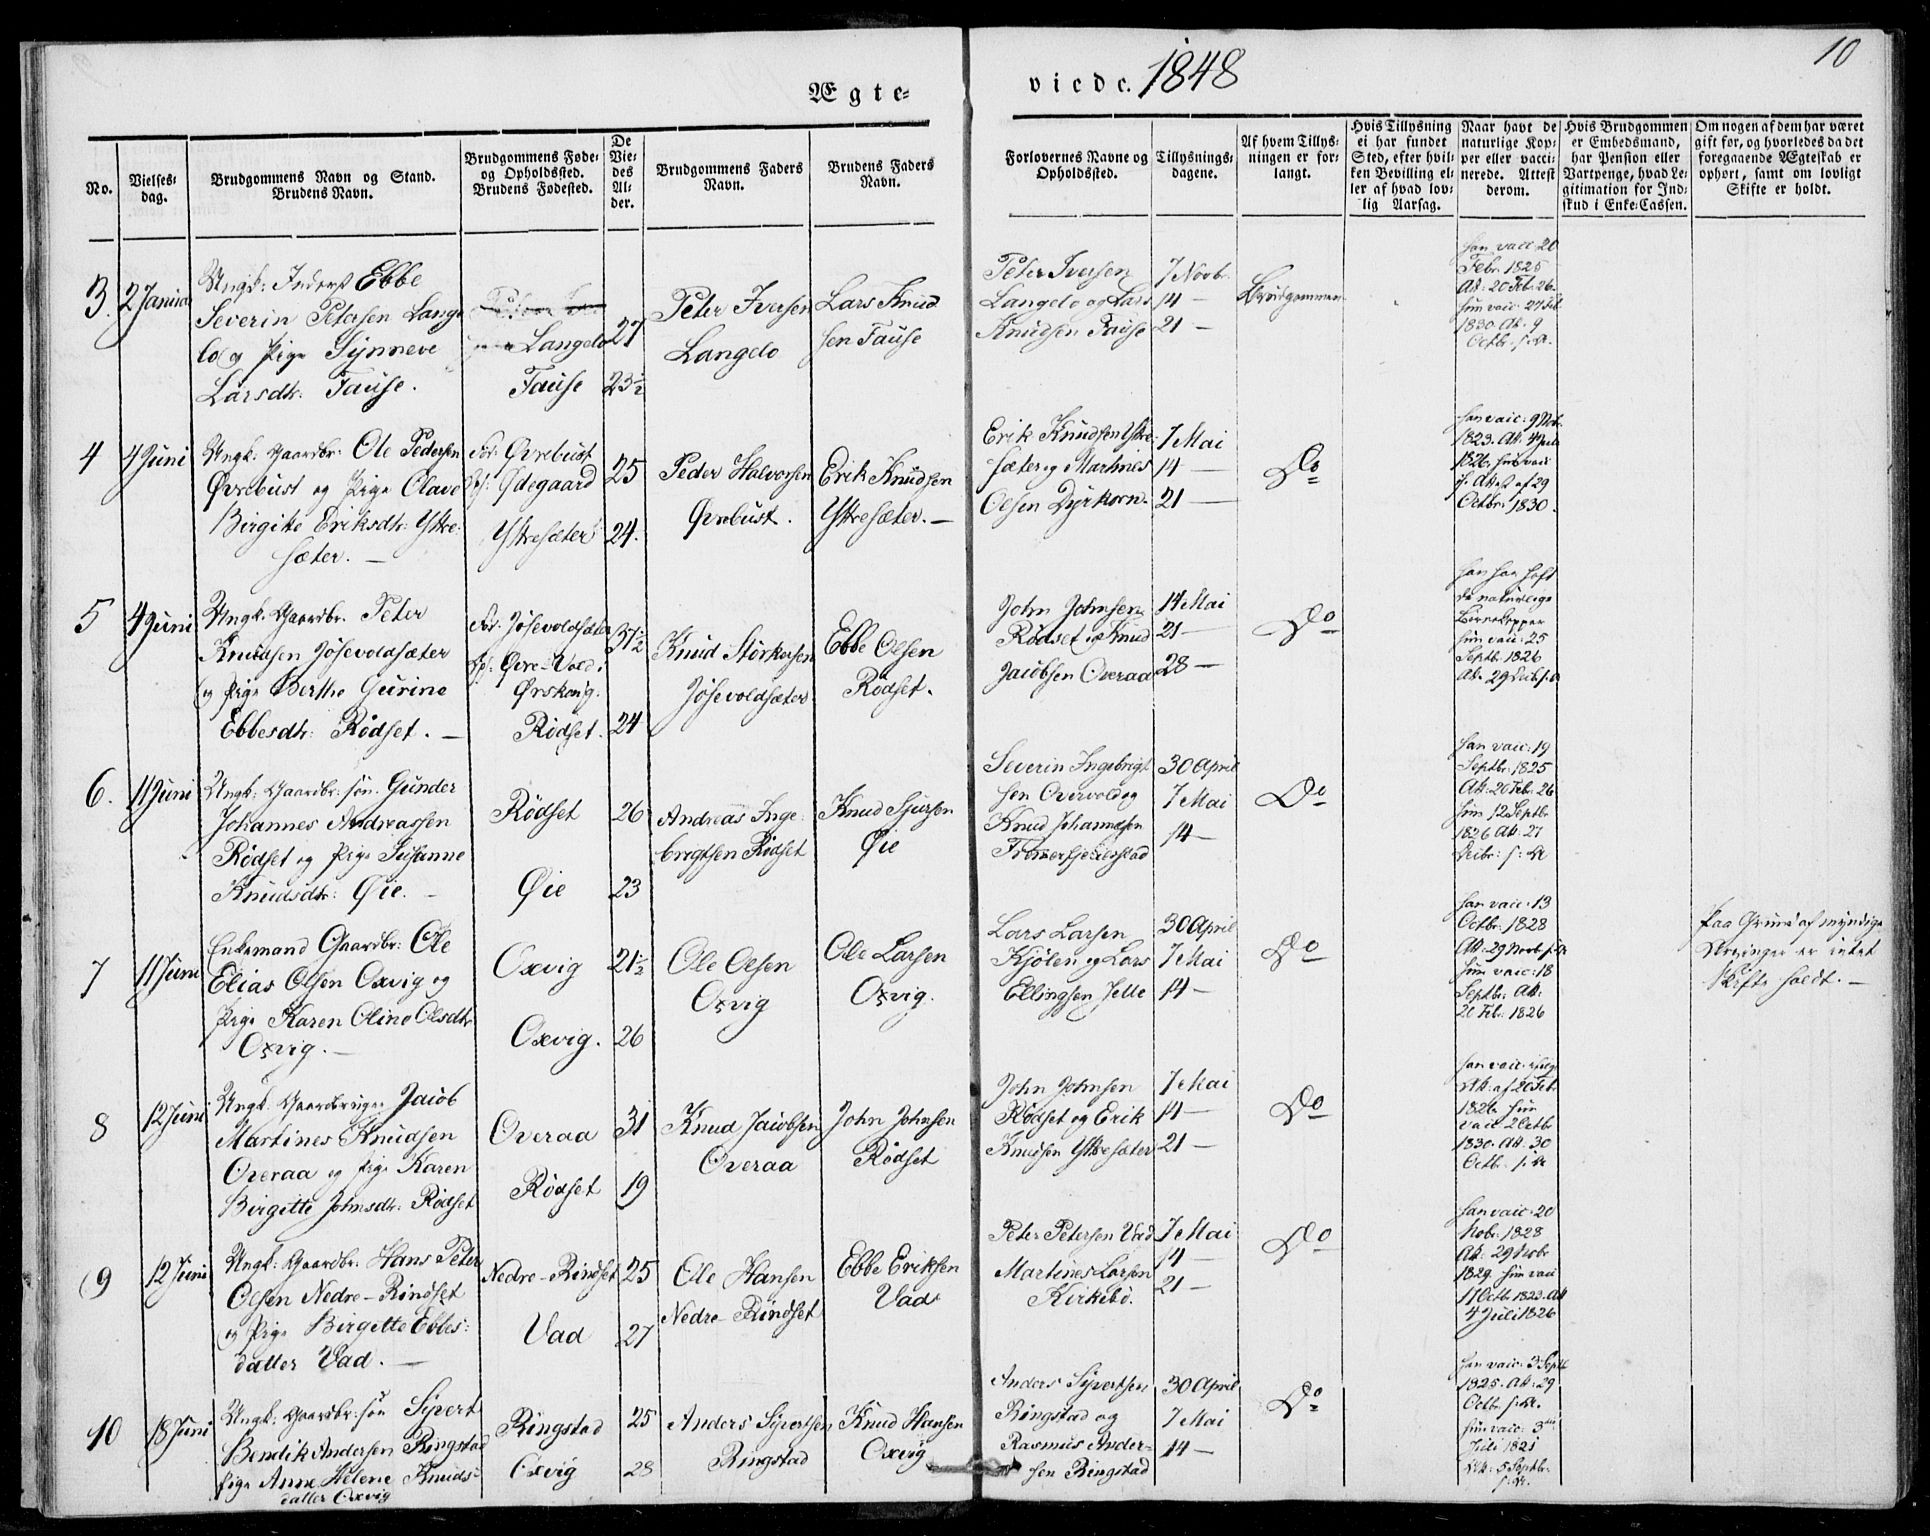 Ægte-
viede. 1848
10
No.
Vielses-
dag.
Brudgommens Navn og Stand.
Brudens Navn.
Brudgommens Føde-
og Opholdssted.
Brudens Fødested.
De
Vie-
des
Al-
der.
Brudgommens Faders
Navn.
Brudens Faders
Navn.
Forlovernes Navne og
Opholdssted.
Tillysnings-
dagene.
Af hvem Tillys-
ningen er for-
langt.
Hvis Tillysning
ei har fundet
Sted, efter hvil-
ken Bevilling el-
ler af hvad lov-
lig Aarsag.
Naar havt de
naturlige Kop-
per eller vacci-
nerede. Attest
derom.
Hvis Brudgommen
er Embedsmand,
har Pension eller
Vartpenge, hvad Le-
gitimation for Ind-
skud i Enke-Cassen.
Om nogen af dem har været
gift før, og hvorledes da det
foregaaende Ægteskab er
ophørt, samt om lovligt
Skifte er holdt.
3. 2 Januar
Ungk: Inderst Ebbe
Severin Petersen Lange-
lo og Pige Synneve
Larsdtr: Fause.
Langelo
Fause
27
23½
Peter Iversen
Langelo
Lars Knud
sen Fause
Peter Iversen
Langelo og Lars
Knudsen Fause
7 Novbr.
14 —
21 —
Brudgommen
han vacc: 20
Febr. 1825
At: 20 Feb. 26.
hun vacc: 27 Feb
1830. At. 9
Octbr. s: A.
4 4 Juni
Ungk: Gaardbr. Ole Pedersen
Øvrebust og Pige Olave
Birgite Eriksdtr: Ystre-
sæter. —
Fød: Øvrebust
Op: Ødegaard
Ystresæter
25
24.
Peder Halvorsen
Øvrebust.
Erik Knudsen
Ystresæter. —
Erik Knudsen Ystre-
sæter og Martines
Olsen Dyrkorn.
7 Mai
14 —
21 —
Do
han vacc: 9 Nob.
1823. At. 4 Juli
1826. hun vacc
f: Attest af 29
Octbr. 1830.
5 4 Juni
Ungk. Gaardbr. Peter
Knudsen Jøsevoldsæter
og Pige Berthe Gurine
Ebbesdtr: Rødset. —
Fød. Jøsevoldsæter
Op: Øvre-Vold i
Ørskoug.
Rødset.
31½
24
Knud Størkersen
Jøsevoldsæter
Ebbe Olsen
Rødset.
John Johnsen
Rødset og Knud
Jacobsen Overaa
14 Mai
21 —
28 —
Do
han har haft
de naturlige
Børnekopper
hun vacc: 25
Septb. 1826
6. 11 Juni
Ungk: Gaardbr: søn. Gunder
Johannes Andreassen
Rødset og Pige Susanne
Knudsdtr: Øie. —
Rødset
Øie
26
23
Andreas Inge-
brigtsen Rødset
Knud Sjursen
Øie
Severin Ingebrigt
sen Overvold og
Knud Johannesen
30 April
7 Mai
14 —
Do
han vacc: 19
Septbr: 1825
At: 20 Feb. 26
hun 12 Septbr
1826 At: 27
7 11 Juni
Enkemand Gaardbr: Ole
Elias Olsen Oxvig og
Pige Karen Oline Olsdtr
Oxvig. —
Oxvig
Oxvig.
21½
26
Ole Olsen
Oxvig
Ole Larsen
Oxvig.
Lars Larsen
Kjølen og Lars
Ellingsen Jelle
30 April
7 Mai
14 —
Do
han vacc: 13
Octbr: 1828
At: 29 Novb s: A
hun vacc: 18
Septbr: At:
20 Feb: 1826
Paa Grund af myndige
Arvinger er intet
Skifte holdt. —
8 12 Juni
Ungk: Gaardbruger Jacob
Martines Knudsen
Overaa og Pige Karen
Birgitte Johnsdtr: Rødset
Overaa
Rødset
31
19
Knud Jacobsen
Overaa
John Johnsen
Rødset
John Johnsen
Rødset og Erik
Knudsen Ystresæter
7 Mai
14 —
21 —
Do
At: af 20 Feb.
1826 hun
vacc 2 Octb
1830. At. 30
Octbr. s: A
9 12 Juni
Ungk: Gaardbr. Hans Peter
Olsen Nedre-Rindset
og Pige Birgitte Ebbes-
datter Vad. —
Nedre-Rindset
Vad
25
27
Ole Hansen
Nedre Rindset
Ebbe Eriksen
Vad
Peter Petersen Vad
Martines Larsen
Kirkebø.
7 Mai
14 —
21 —
Do
han vacc: 20
Nobr: 1828
At: 29 Nobr
1829. hun vacc
11 Octb. 1823. At
4 Juli 1826
10 18 Juni
Ungk: Gaardbr: søn Sivert
Bendik Andersen Ringstad
Pige Anne Helene Knuds-
datter Oxvig
Ringstad
Oxvig
25
28
Anders Sivertsen
Ringstad
Knud Hansen
Oxvig
Anders Sivertsen
Ringstad og
Rasmus Ander-
sen Ringstad
30 April
7 Mai
14 —
Do
han vacc: 3 Septb
1825. At. 29
Octb. s: A.
hun vacc: 3die
Juli 1821
At: 5 Septbr.
s: A.